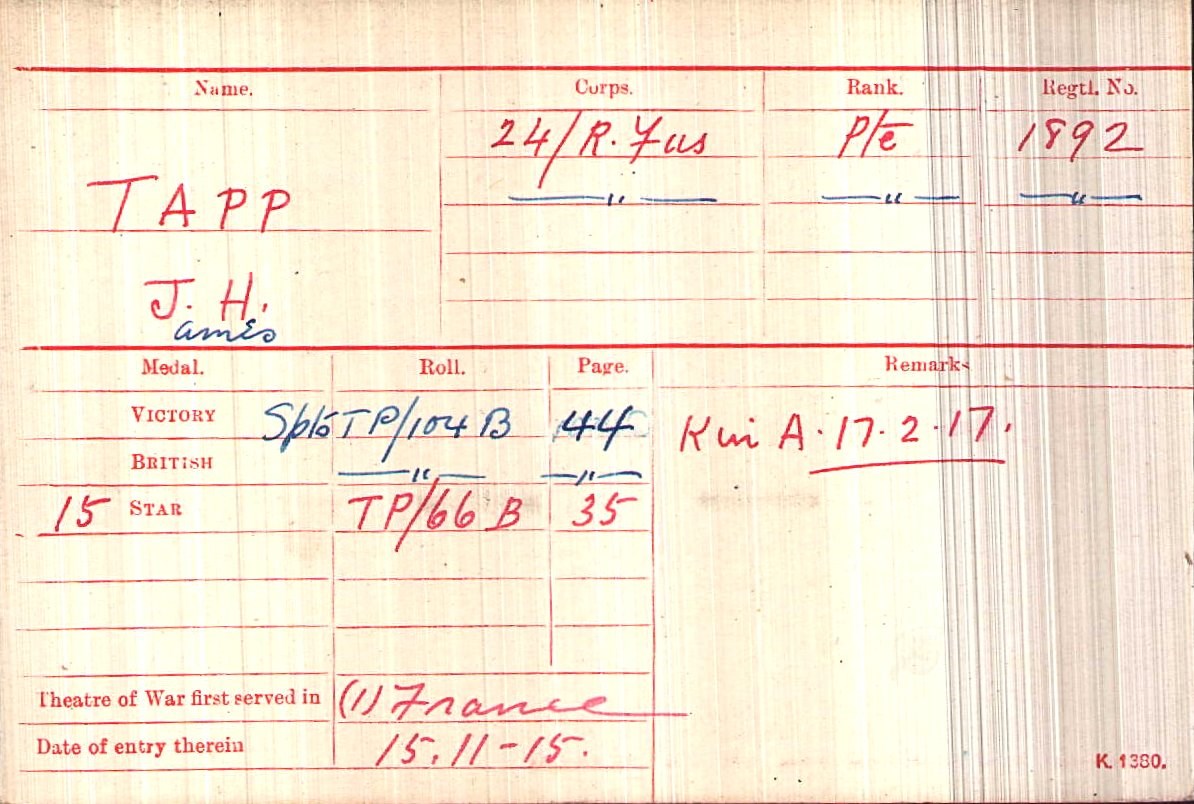 Name. Corps. Rank. Regtl. No.
24/R. Fus Pte 1892
TAPP —"— —"— —"—
J. H.
ames
Medal. Roll. Page. Remarks
VICTORY TP/104 B 44 K in A. 17.2.17.
BRITISH —"— —"—
15 STAR TP/66 B 35
Theatre of War first served in (1) France
Date of entry therein 15.11-15.
K. 1380.